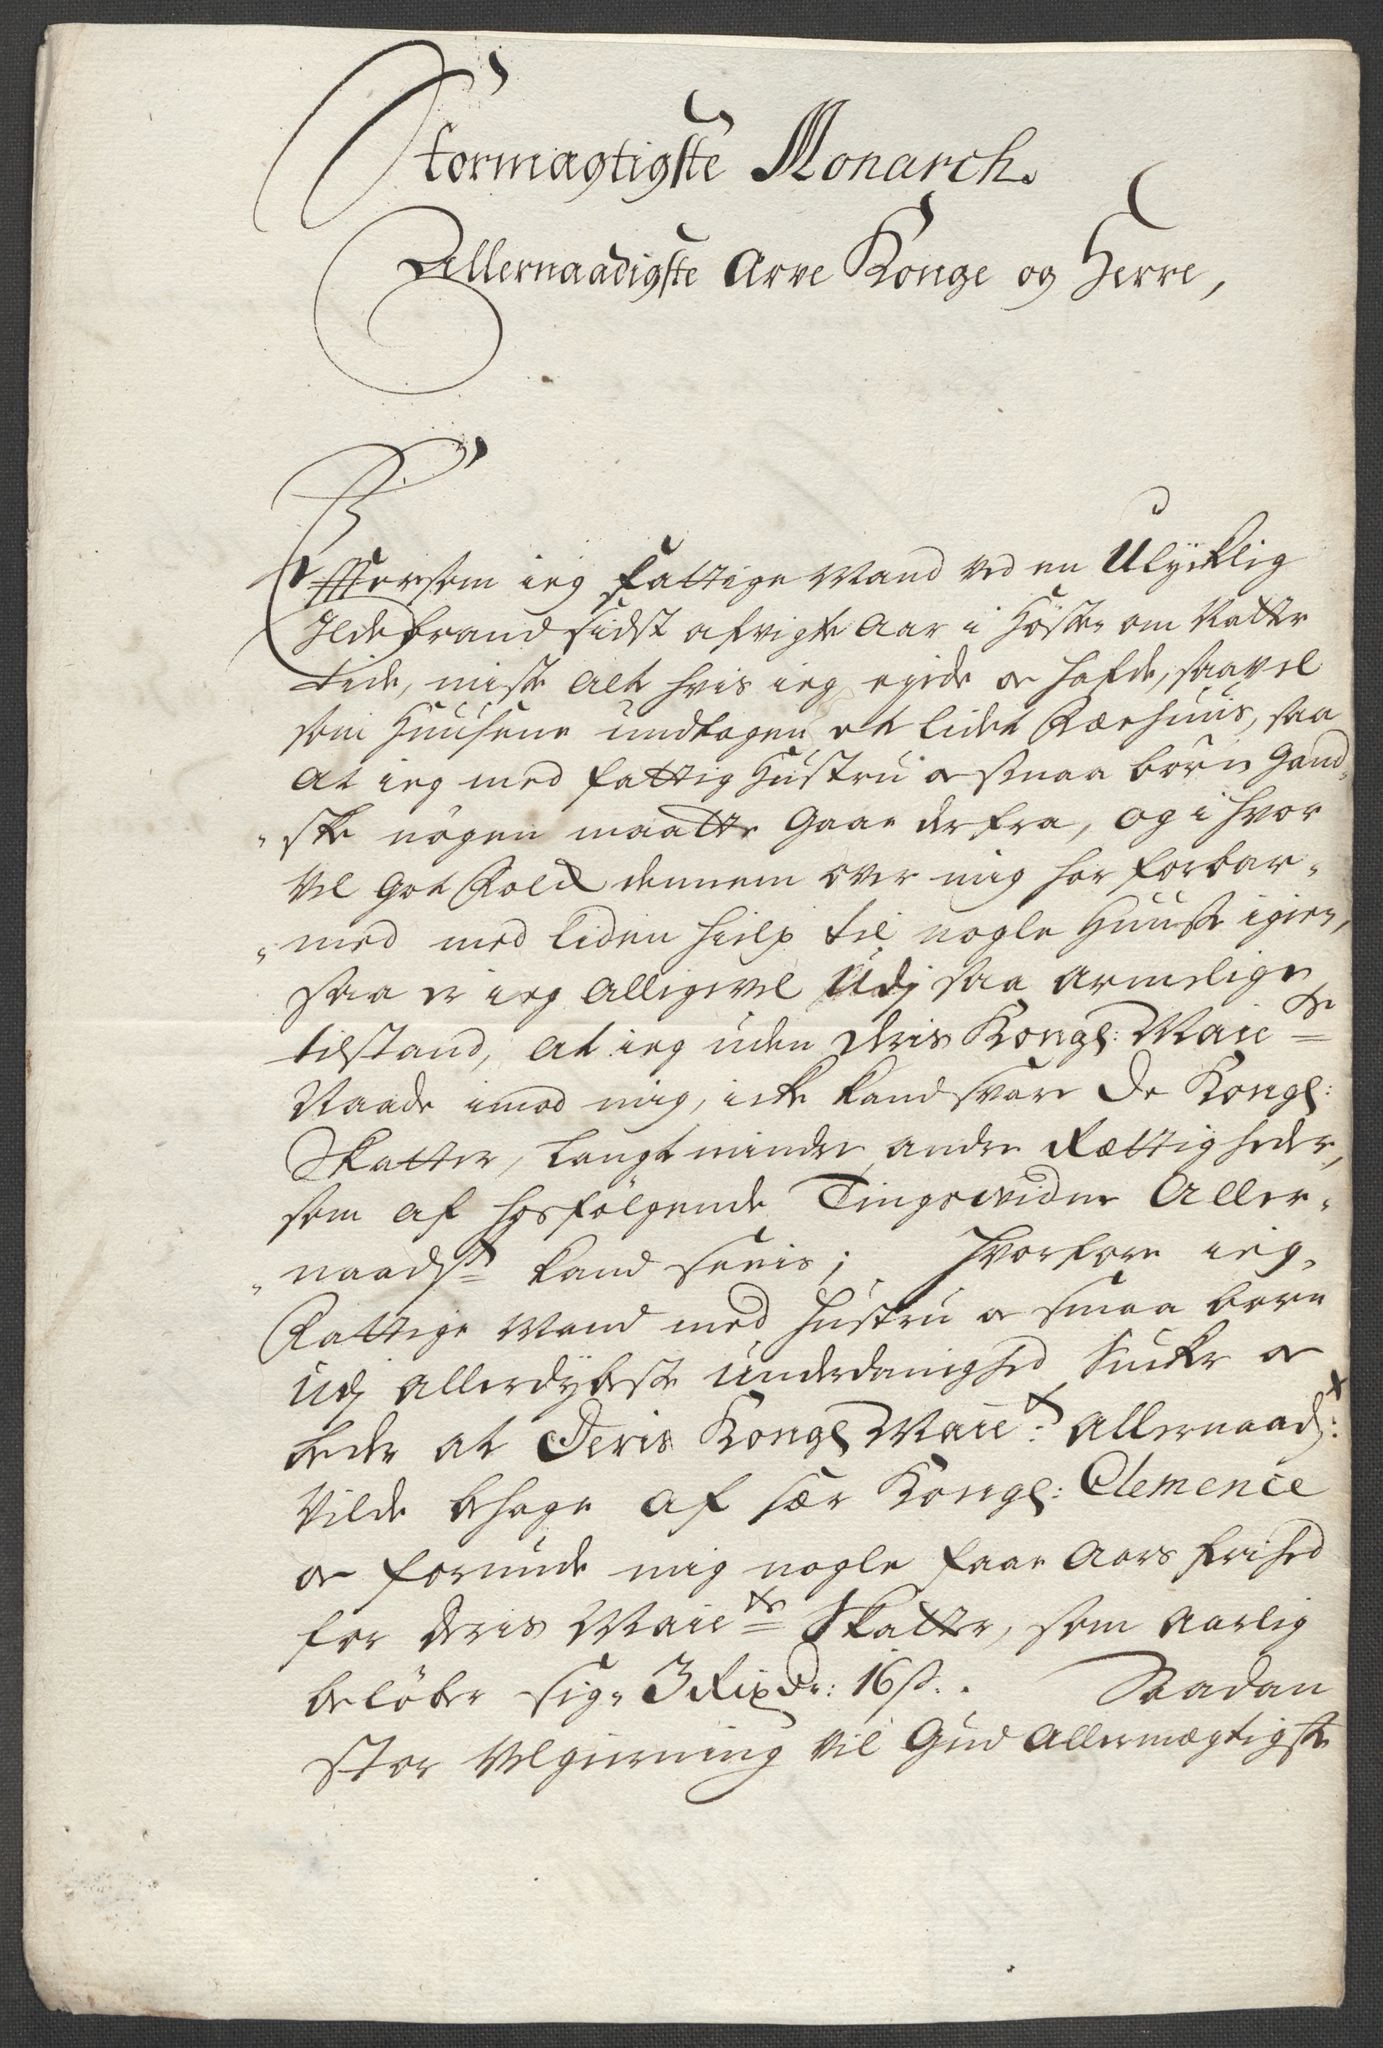 Stormagtigste Monarch.
Allernaadigste Arve Konge og Herre,
Efftersom ieg fattige Mand ved en Ulycklig
Ildebrand sidst afvigte Aar i Høste om Natte
tide, miste alt hvis ieg eyede oc hafde, saavel
som Huusene undtagen et lidet Fæehuus, saa
at ieg med fattig Hustru oc smaa børn Gand„
„ske nøgen maatte Gaae derfra, og i hvor
vel Got Folck dennem over mig har forbar„
„med med liden hielp til nogle Huuse igien,
saa er ieg alligevel Udj saa armelige
tilstand, at ieg uden Deris Kongl: Maie^ts
Naade imod mig, icke kand svare De Kongl:
Skatter, langt mindre andre Rættigheder,
som af hosfølgende Tingsvidne Aller„
„naadst kand sees; Hvorfore ieg
Fattige Mand med Hustru oc smaa børn
Udj allerdybeste Underdanighed Sucker oc
beder at Deris Kongl Maie^t: allernaadst:
Vilde behage af sær Kongl: Clemence
oc forunde mig nogle faae Aars frihed
for Deris Maie^ts Skatter, som aarlig
beløber sig 3 Rixdr: 16 s:. Saadan
stor Velgierning vil Gud Allermægtigste